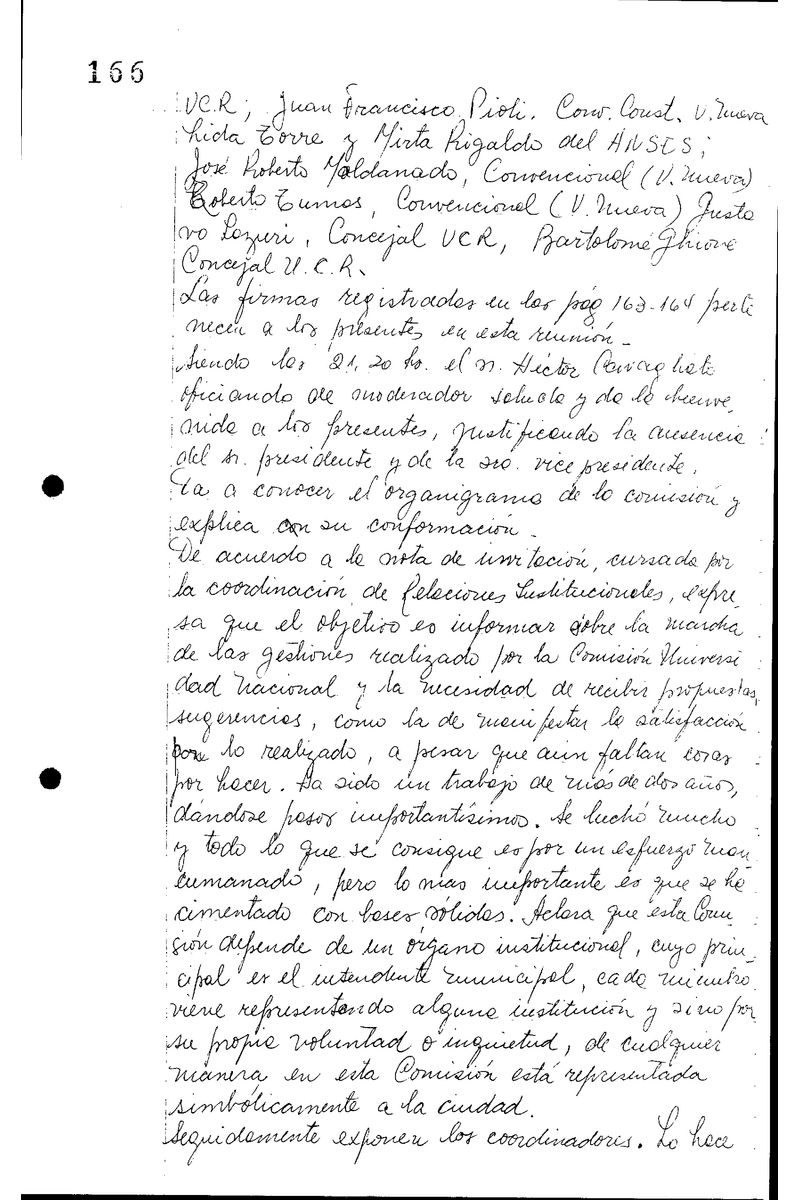 166
UCR; Juan Francisco Pioli. Conv. Const. V. Nueva
Lida Torre y Mirta Rigaldo del ANSES;
José Roberto Maldonado, Convencional (V. Nueva)
Roberto Tumas, Convencional (V. Nueva) Gusta
vo Lazuri, Concejal UCR, Bartolomé Ghione
Concejal U.C.R.
Las firmas registradas en las pág 163-164 perte
necen a los presentes en esta reunión_
Siendo las 21,20 hs. el sr. Héctor Cavaglhato
oficiando de moderador saluda y da la bienve_
nida a los presentes, justificando la ausencia
del sr. presidente y de la sra. vicepresidente.
Da a conocer el organigrama de la comisión y
explica con su conformación_
De acuerdo a la nota de invitación, cursada por
la coordinación de Relaciones Institucionales, expre_
sa que el objetivo es informar sobre la marcha
de las gestiones realizado por la Comisión Universi
dad Nacional y la necesidad de recibir propuestas,
sugerencias, como la de manifestar la satisfacción
por lo realizado, a pesar que aún faltan cosas
por hacer. Ha sido un trabajo de más de dos años,
dándose pasos importantísimos. Se luchó mucho
y todo lo que se consigue es por un esfuerzo man_
cumanado, pero lo mas importante es que se ha
cimentado con bases sólidas. Aclara que esta Comi_
sión depende de un órgano institucional, cuyo prin_
cipal es el intendente municipal, cada miembro
viene representando alguna institución y sino por
su propia voluntad o inquietud, de cualquier
manera, en esta Comisión está representada
simbólicamente a la ciudad.
Seguidamente exponen los coordinadores. Lo hace